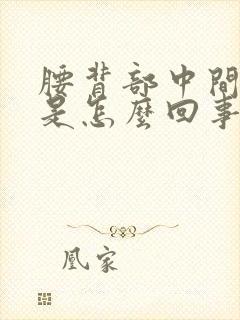 腰背部中間
是怎麼回事
凰家